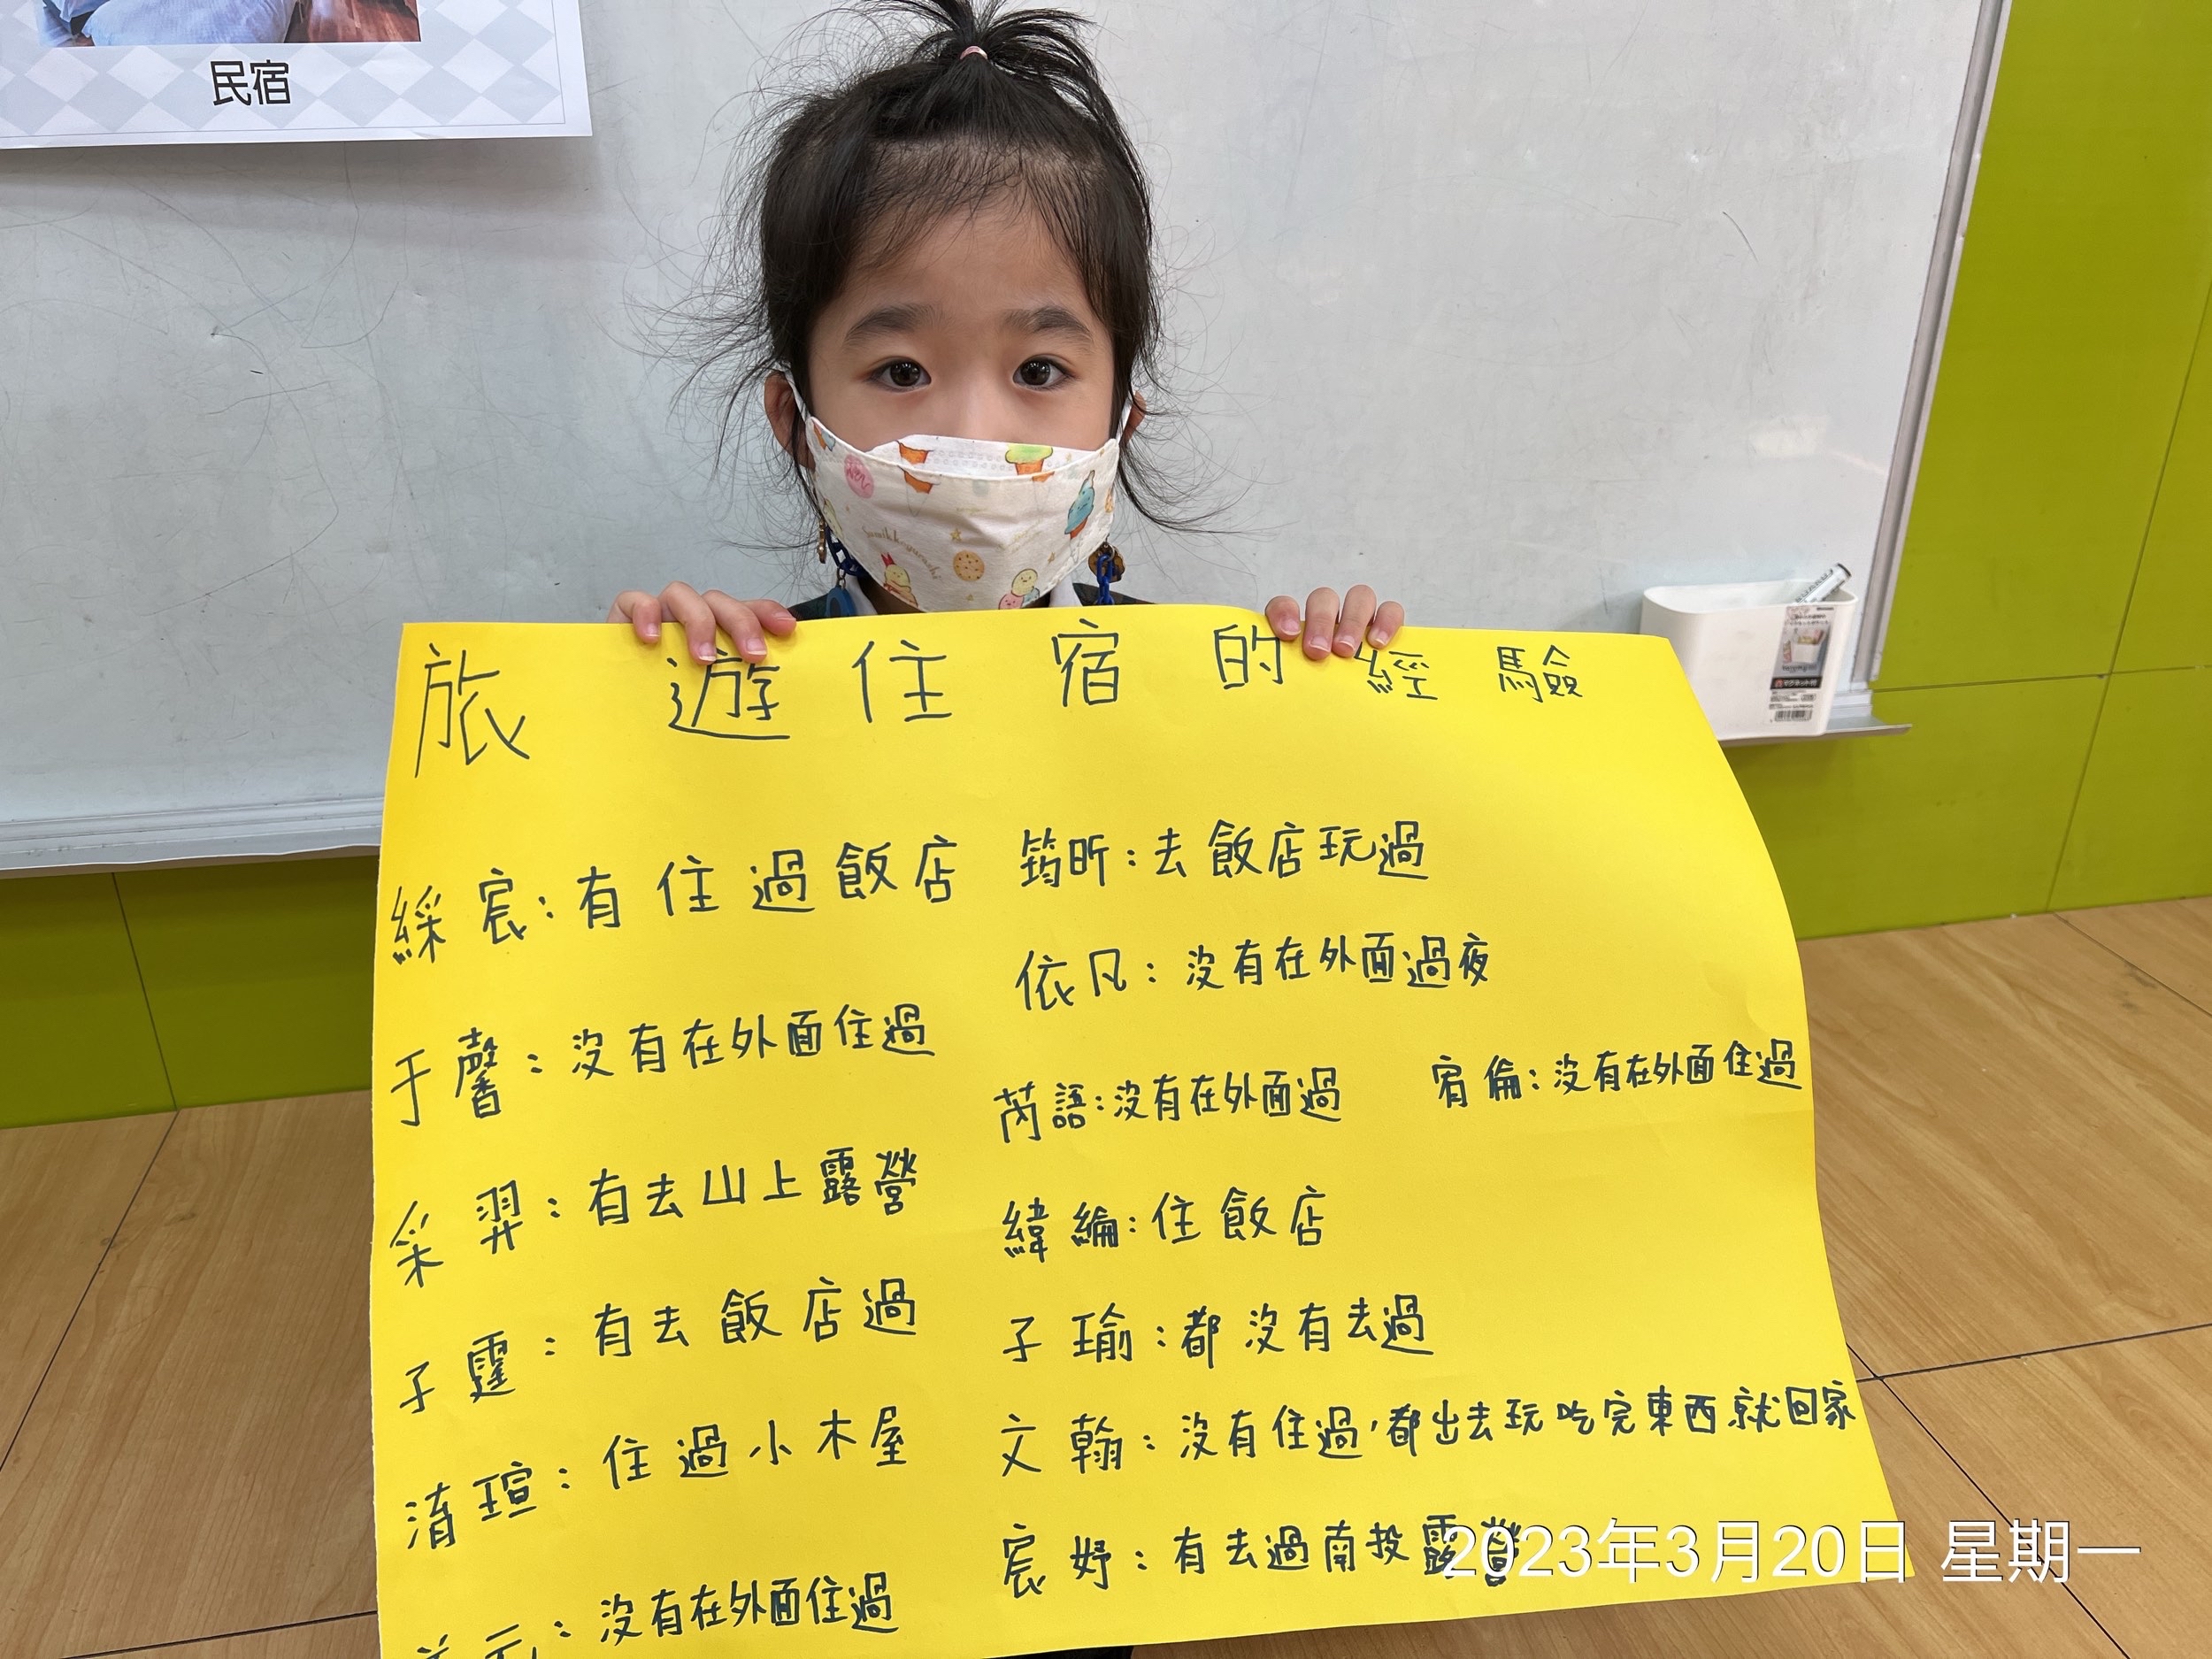 民宿
旅遊住宿的經驗
綵宸:有住過飯店
于馨:沒有在外面住過
采羿:有去山上露營
子霆:有去飯店過
淯瑄:住過小木屋
元:沒有在外面住過
筠昕:去飯店玩過
依凡:沒有在外面過夜
芮語:沒有在外面過
宥倫:沒有在外面住過
緯綸:住飯店
子瑜:都沒有去過
文翰:沒有住過,都出去玩吃完東西就回家
宸妤:有去過南投露營
2023年3月20日 星期一